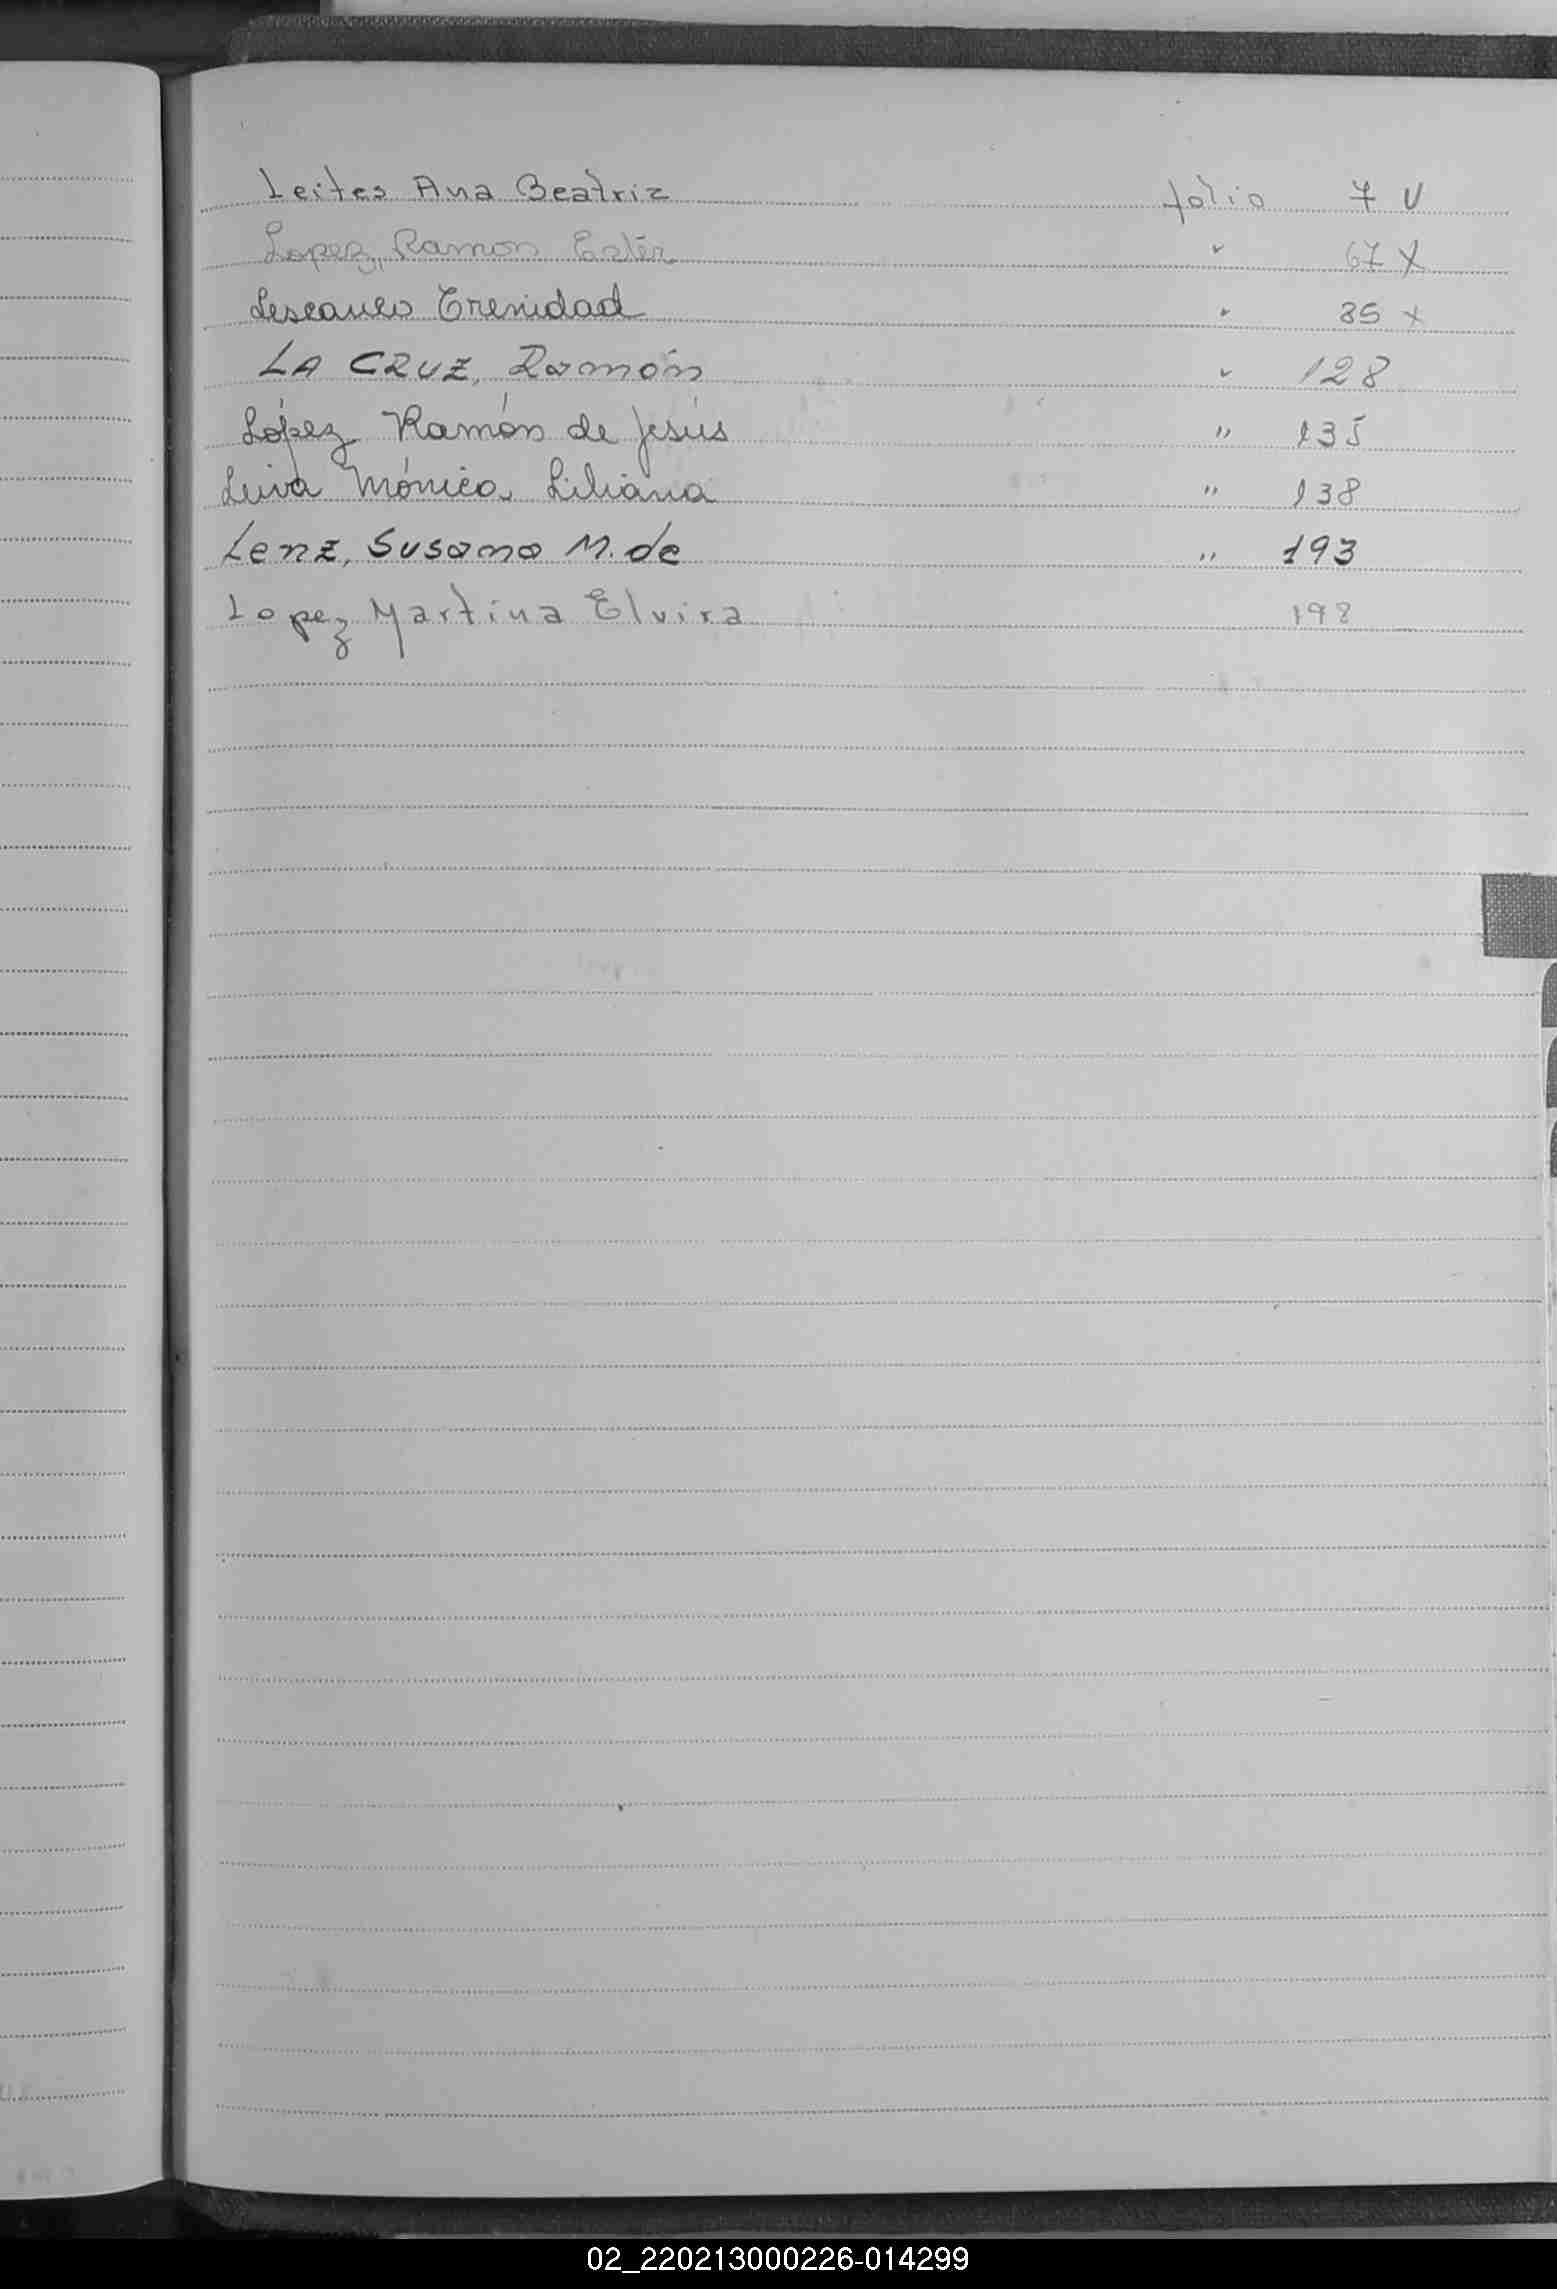 Leites Ana Beatriz folio 7 V
Lopez, Ramon Ester " 67 X
Lescano Trenidad " 85 x
LA CRUZ, Ramón " 128
López Ramón de Jesús " 135
Leiva Mónica Liliana " 138
Lenz, Susana M. de " 193
Lopez Martina Elvira 198
02_220213000226-014299